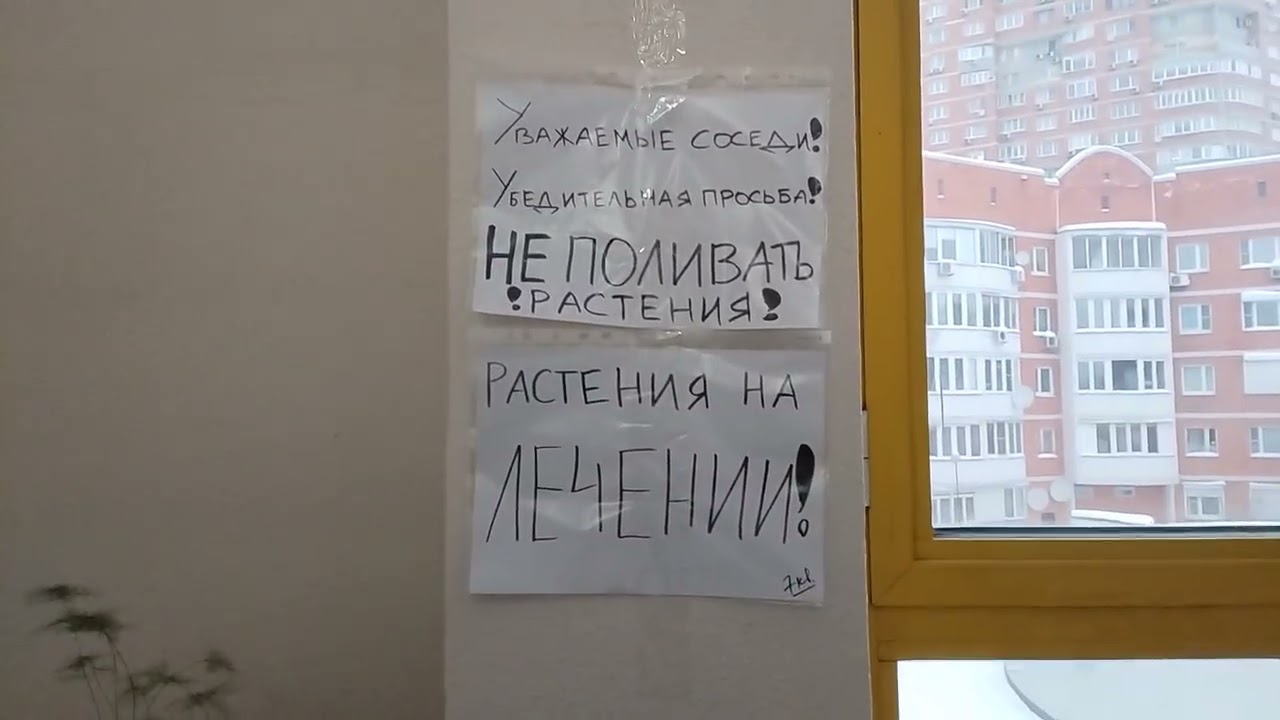 Уважаемые соседи!
Убедительная просьба!
НЕ ПОЛИВАТЬ
!РАСТЕНИЯ!
РАСТЕНИЯ НА
ЛЕЧЕНИИ!
7кв.